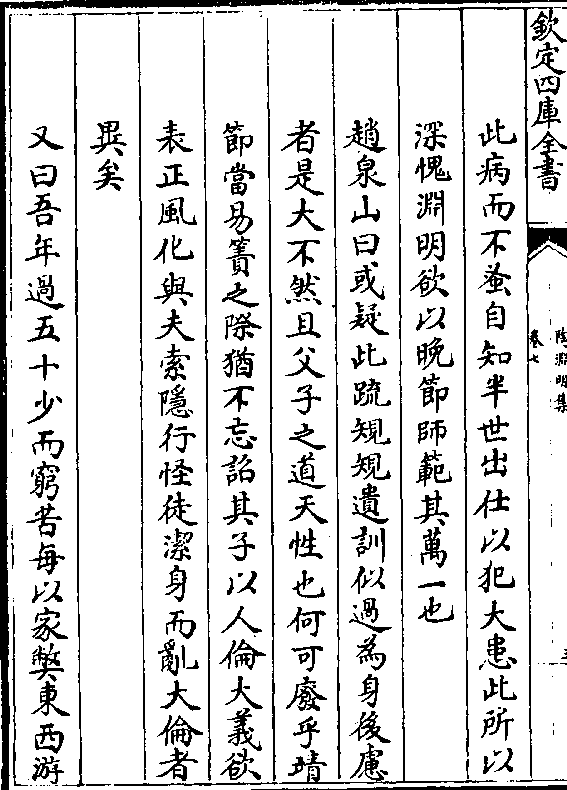 欽定四庫全書
陶淵明集
卷七
此病而不蚤自知半世出仕以犯大患此所以
深愧淵明欲以晚節師範其萬一也
趙泉山曰或疑此䟽規規遺訓似過為身後慮
者是大不然且父子之道天性也何可廢乎靖
節當易簀之際猶不忘詔其子以人倫大義欲
表正風化與夫索隱行怪徒潔身而亂大倫者
異矣
又曰吾年過五十少而窮苦每以家弊東西游